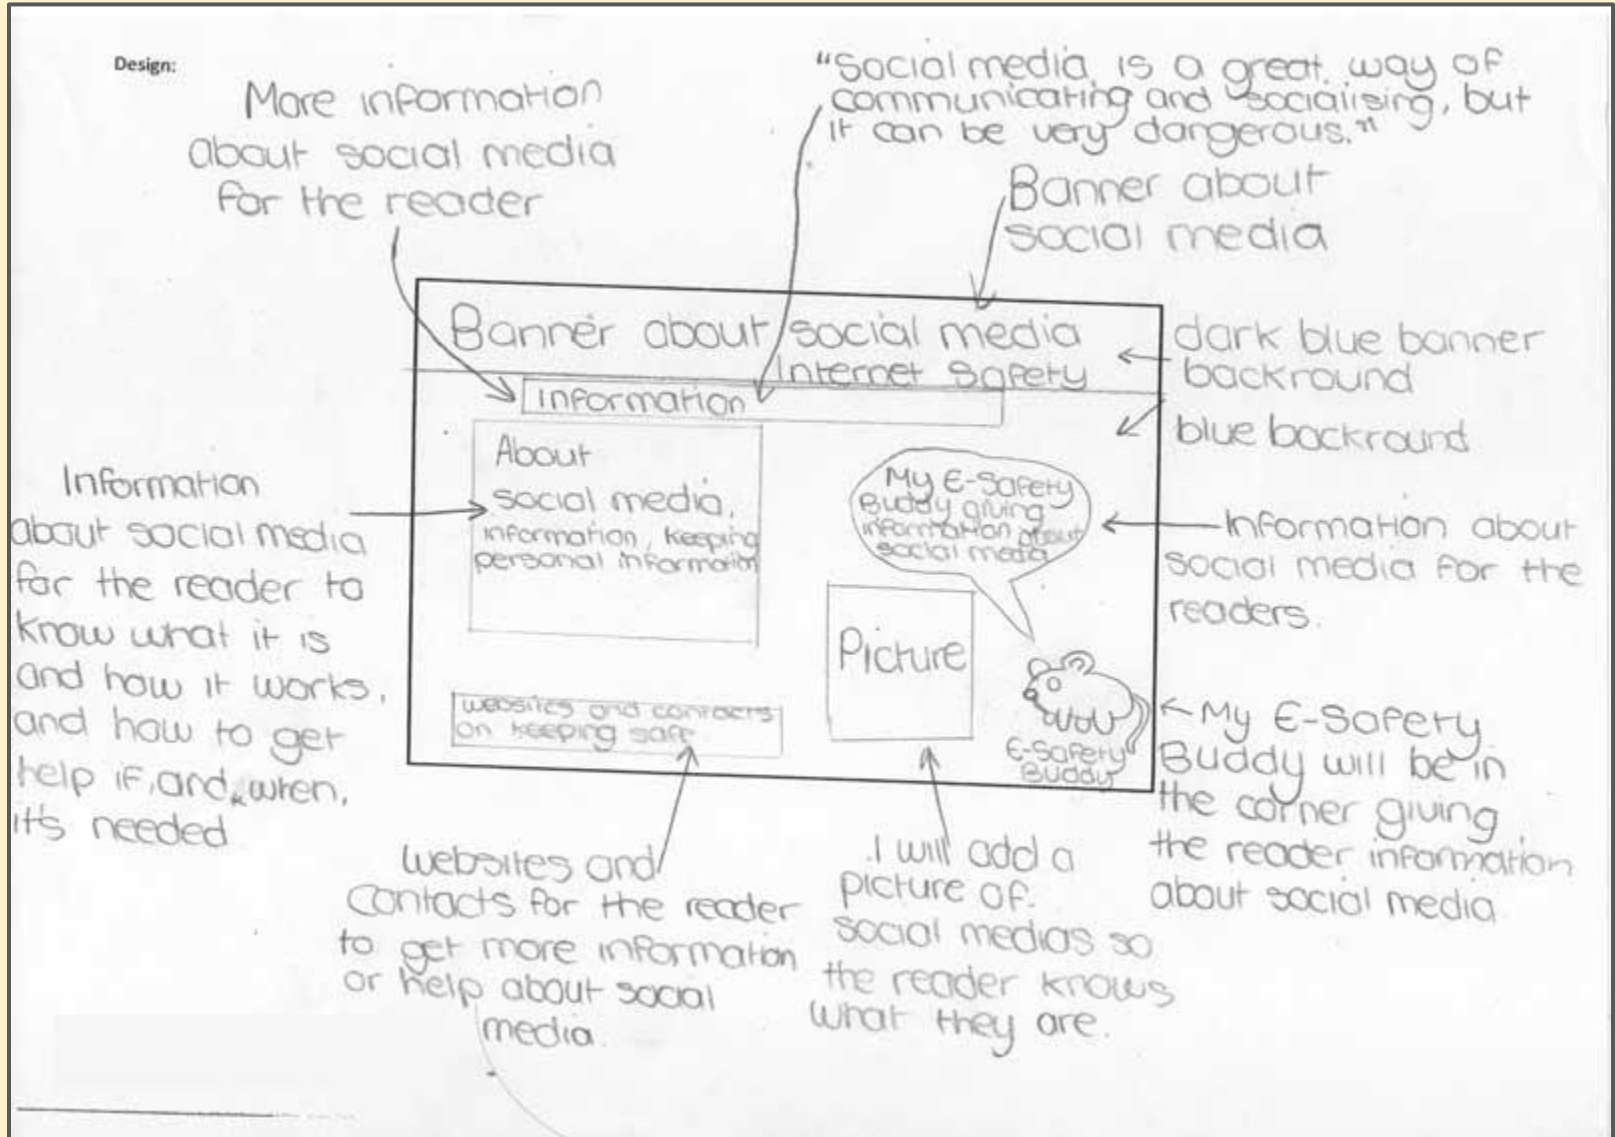 Design:
More information
about social media
for the reader
"Social media is a great way of
communicating and socialising, but
it can be very dangerous."
Banner about
social media
Banner about social media
Internet Safety
dark blue banner
backround
blue backround
information
About
social media,
information, keeping
personal information
My E-Safety
Buddy giving
information about
social media
Information
about social media
for the reader to
know what it is
and how it works,
and how to get
help if, and, when,
it's needed.
Information about
social media for the
readers.
Picture
E-Safety
Buddy
websites and contacts
on keeping safe.
My E-Safety
Buddy will be in
the corner giving
the reader information
about social media
websites and
contacts for the reader
to get more information
or help about social
media.
I will add a
picture of
social medias so
the reader knows
what they are.